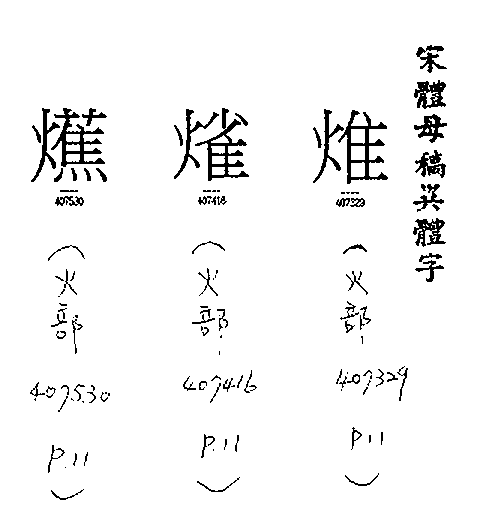 宋體母稿異體字
407329
(火部
407329
P.11)
407416
(火部
407416
P.11)
407530
(火部
407530
P.11)